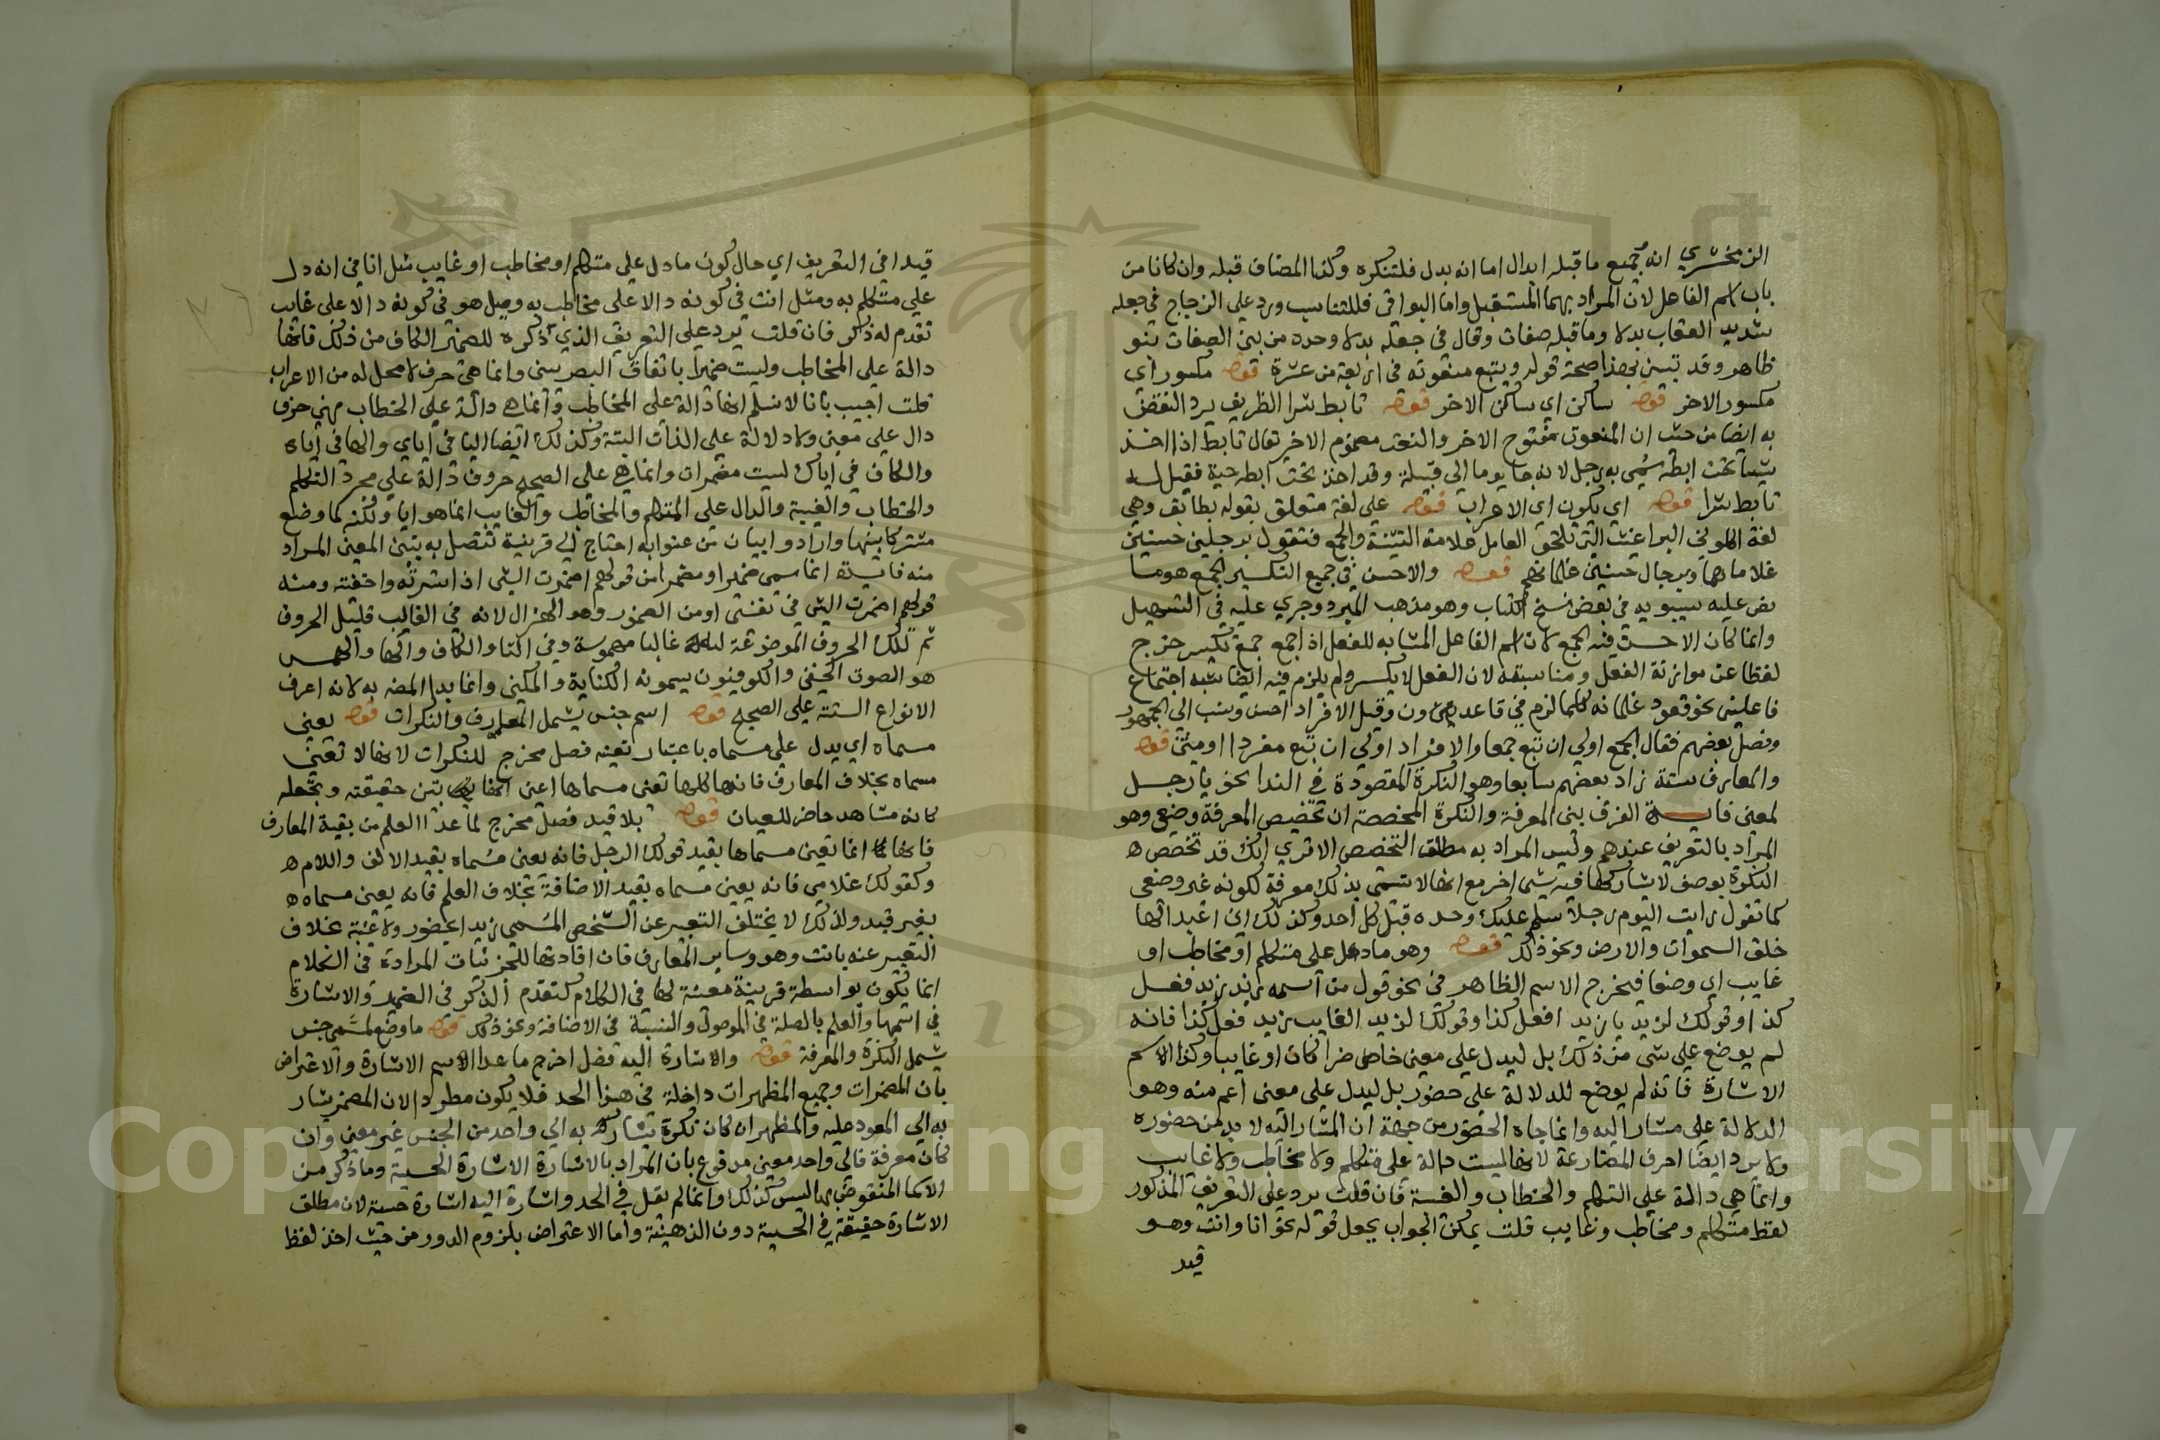 الزمخشري انه جميع ما قبله ابدال اما انه بدل فلتنكره وكذا المضاف قبله وان كانا من
باب اسم الفاعل لان المراد بهما المستقبل واما البواقي فللتناسب ورد على الزجاج في جعله
شديد العقاب بدلا وما قبله صفات وقال في جعله بدلا وحده من بين الصفات نبو
ظاهر وقد تبين بهذا صحة قوله ويتبع منعوته في اربعة من عشرة قوله مكسور اي
مكسور الاخر قوله ساكن اي ساكن الاخر قوله تابط شرا الظريف يرد النقض
به ايضا من حيث ان المنعوت مفتوح الاخر والنعت مضموم الاخر تقال تابط اذا اخذ
شيا تحت ابطه سمي به رجل لانه جا يوما الى قبيلة وقد اخذ تحت ابطه حية فقيل له
تابط شرا قوله اي يكون اي الاعراب قوله على لغة متعلق بقوله يطابق وهي
لغة اكلوني البراغيث التي تلحق العامل علامة التثنية والجمع فتقول برجلين حسنين
غلاماهما وبرجال حسنين غلمانهم قوله والاحسن في جميع التكسير الجمع هو ما
نص عليه سيبويه في بعض نسخ الكتاب وهو مذهب المبرد وجري عليه في التسهيل
وانما كان الاحسن فيه الجمع لان اسم الفاعل المشابه للفعل اذا جمع جمع تكسير خرج
لفظا عن موازنة الفعل ومناسبته لان الفعل لا يكسر ولم يلزم فيه ايضا شبه اجتماع
فاعلين نحو قعود غلمانه كلما لزم في قاعدون وقيل الافراد احسن ونسب الى الجمهور
وفصل بعضهم فقال الجمع اولي ان تبع جمعا والافراد اولي ان تبع مفردا او مثنى قوله
والمعارف ستة زاد بعضهم سابعا وهو النكرة المقصودة في الندا نحو يا رجل
لمعين فايدة الفرق بين المعرفة والنكرة المخصصة ان تخصيص المعرفة وضعي وهو
المراد بالتعريف عندهم وليس المراد به مطلق التخصص الا تري انك قد تخصص
النكرة بوصف لا يشاركها فيه شي اخر مع انها لا تسمى بذلك معرفة لكونه غير وضعي
كما تقول رايت اليوم رجلا سلم عليك وحده قبل كل احد وكذلك اني اعبد الها
خلق السموات والارض ونحو ذلك قوله وهو ما دل على متكلم او مخاطب او
غايب اي وضعا فيخرج الاسم الظاهر في نحو قول من اسمه زيد زيد فعل
كذا وقولك لزيد يا زيد افعل كذا وقولك لزيد الغايب زيد فعل كذا فانه
لم يوضع على شي من ذلك بل ليدل على معين حاضرا كان او غايبا وكذا الاسم
الاشارة فانه لم يوضع للدلالة على حضور بل ليدل على معنى اعم منه وهو
الدلالة على مشار اليه وانما جاه الحضور من جهة ان المشار اليه لا بد من حضوره
ولا يرد ايضا احرف المضارعة لانها ليست دالة على متكلم ولا مخاطب ولا غايب
وانما هي دالة على التكلم والخطاب والغيبة فان قلت يرد على التعريف المذكور
لفظ متكلم ومخاطب وغايب قلت يمكن الجواب بجعل قوله نحو انا وانت وهو
قيد
قيدا في التعريف اي حال كون ما دل على متكلم او مخاطب او غايب مثل انا في انه دل
على متكلم به ومثل انت في كونه دالا على مخاطب به ومثل هو في كونه دالا على غايب
تقدم له ذكر فان قلت يرد على التعريف الذي ذكره للضمير الكاف من ذلك فانها
دالة على المخاطب وليست ضميرا باتفاق البصريين وانما هي حرف لا محل له من الاعراب
قلت اجيب بانا لا نسلم انها دالة على المخاطب وانما هي دالة على الخطاب فهي حرف
دال على معنى ولا دلالة على الذات البتة وكذلك ايضا اليا في اياي والها في اياه
والكاف في اياك ليست مضمرات وانما هي على الصحيح حروف دالة على مجرد التكلم
والخطاب والغيبة والدال على المتكلم والمخاطب والغايب انما هو ايا ولكنه لما وضع
مشتركا بينها وارادوا بيان من عنوا به احتاج الى قرينة تتصل به تبين المعنى المراد
منه فايدة انما سمي ضميرا او مضمرا من قولهم اضمرت الشي اذا سترته واخفيته ومنه
قولهم اضمرت الشي في نفسي او من الضمور وهو الهزال لانه في الغالب قليل الحروف
ثم تلك الحروف الموضوعة له غالبا مهموسة وهي التا والكاف والها والهمس
هو الصوت الخفي والكوفيون يسمونه الكناية والمكنى وانما بدا المصنف به لانه اعرف
الانواع الستة على الصحيح قوله اسم جنس يشمل المعارف والنكرات قوله يعين
مسماه اي يدل على مسماه باعتبار تعينه فصل مخرج للنكرات لانها لا تعين
مسماه بخلاف المعارف فانها كلها تعين مسماها اعني انها تبين حقيقته وتجعله
كانه مشاهد حاضر للعيان قوله بلا قيد فصل مخرج لما عدا العلم من بقية المعارف
فانها انما تعين مسماها بقيد كقولك الرجل فانه يعين مسماه بقيد الالف واللام
وكقولك غلامي فانه يعين مسماه بقيد الاضافة بخلاف العلم فانه يعين مسماه
بغير قيد ولذلك لا يختلف التعبير عن الشخص المسمى زيدا بحضور ولا غيبة بخلاف
التعبير عنه بانت وهو وساير المعارف فان افادتها للجزئيات المرادة في الكلام
انما يكون بواسطة قرينة معينة لها في الكلام كتقدم الذكر في الضمير والاشارة
في اسمها والعلم بالصلة في الموصول والنسبة في الاضافة ونحو ذلك قوله ما وضع لمسمى جنس
يشمل النكرة والمعرفة قوله والاشارة اليه فصل اخرج ما عدا الاسم الاشارة والاعتراض
بان المضمرات وجميع المظهرات داخلة في هذا الحد فلا يكون مطردا لان المضمر يشار
به الى المعود عليه والمظهر ان كان نكرة يشار به الي واحد من الجنس غير معين وان
كان معرفة فالي واحد معين مدفوع بان المراد بالاشارة الاشارة الحسية وما ذكر من
الاسما المنقوض بها ليس كذلك وانما لم يقل في الحد واشارة اليه اشارة حسية لان مطلق
الاشارة حقيقة في الحسية دون الذهنية واما الاعتراض بلزوم الدور من حيث اخذ لفظ
Copyright © King Saud University
1957